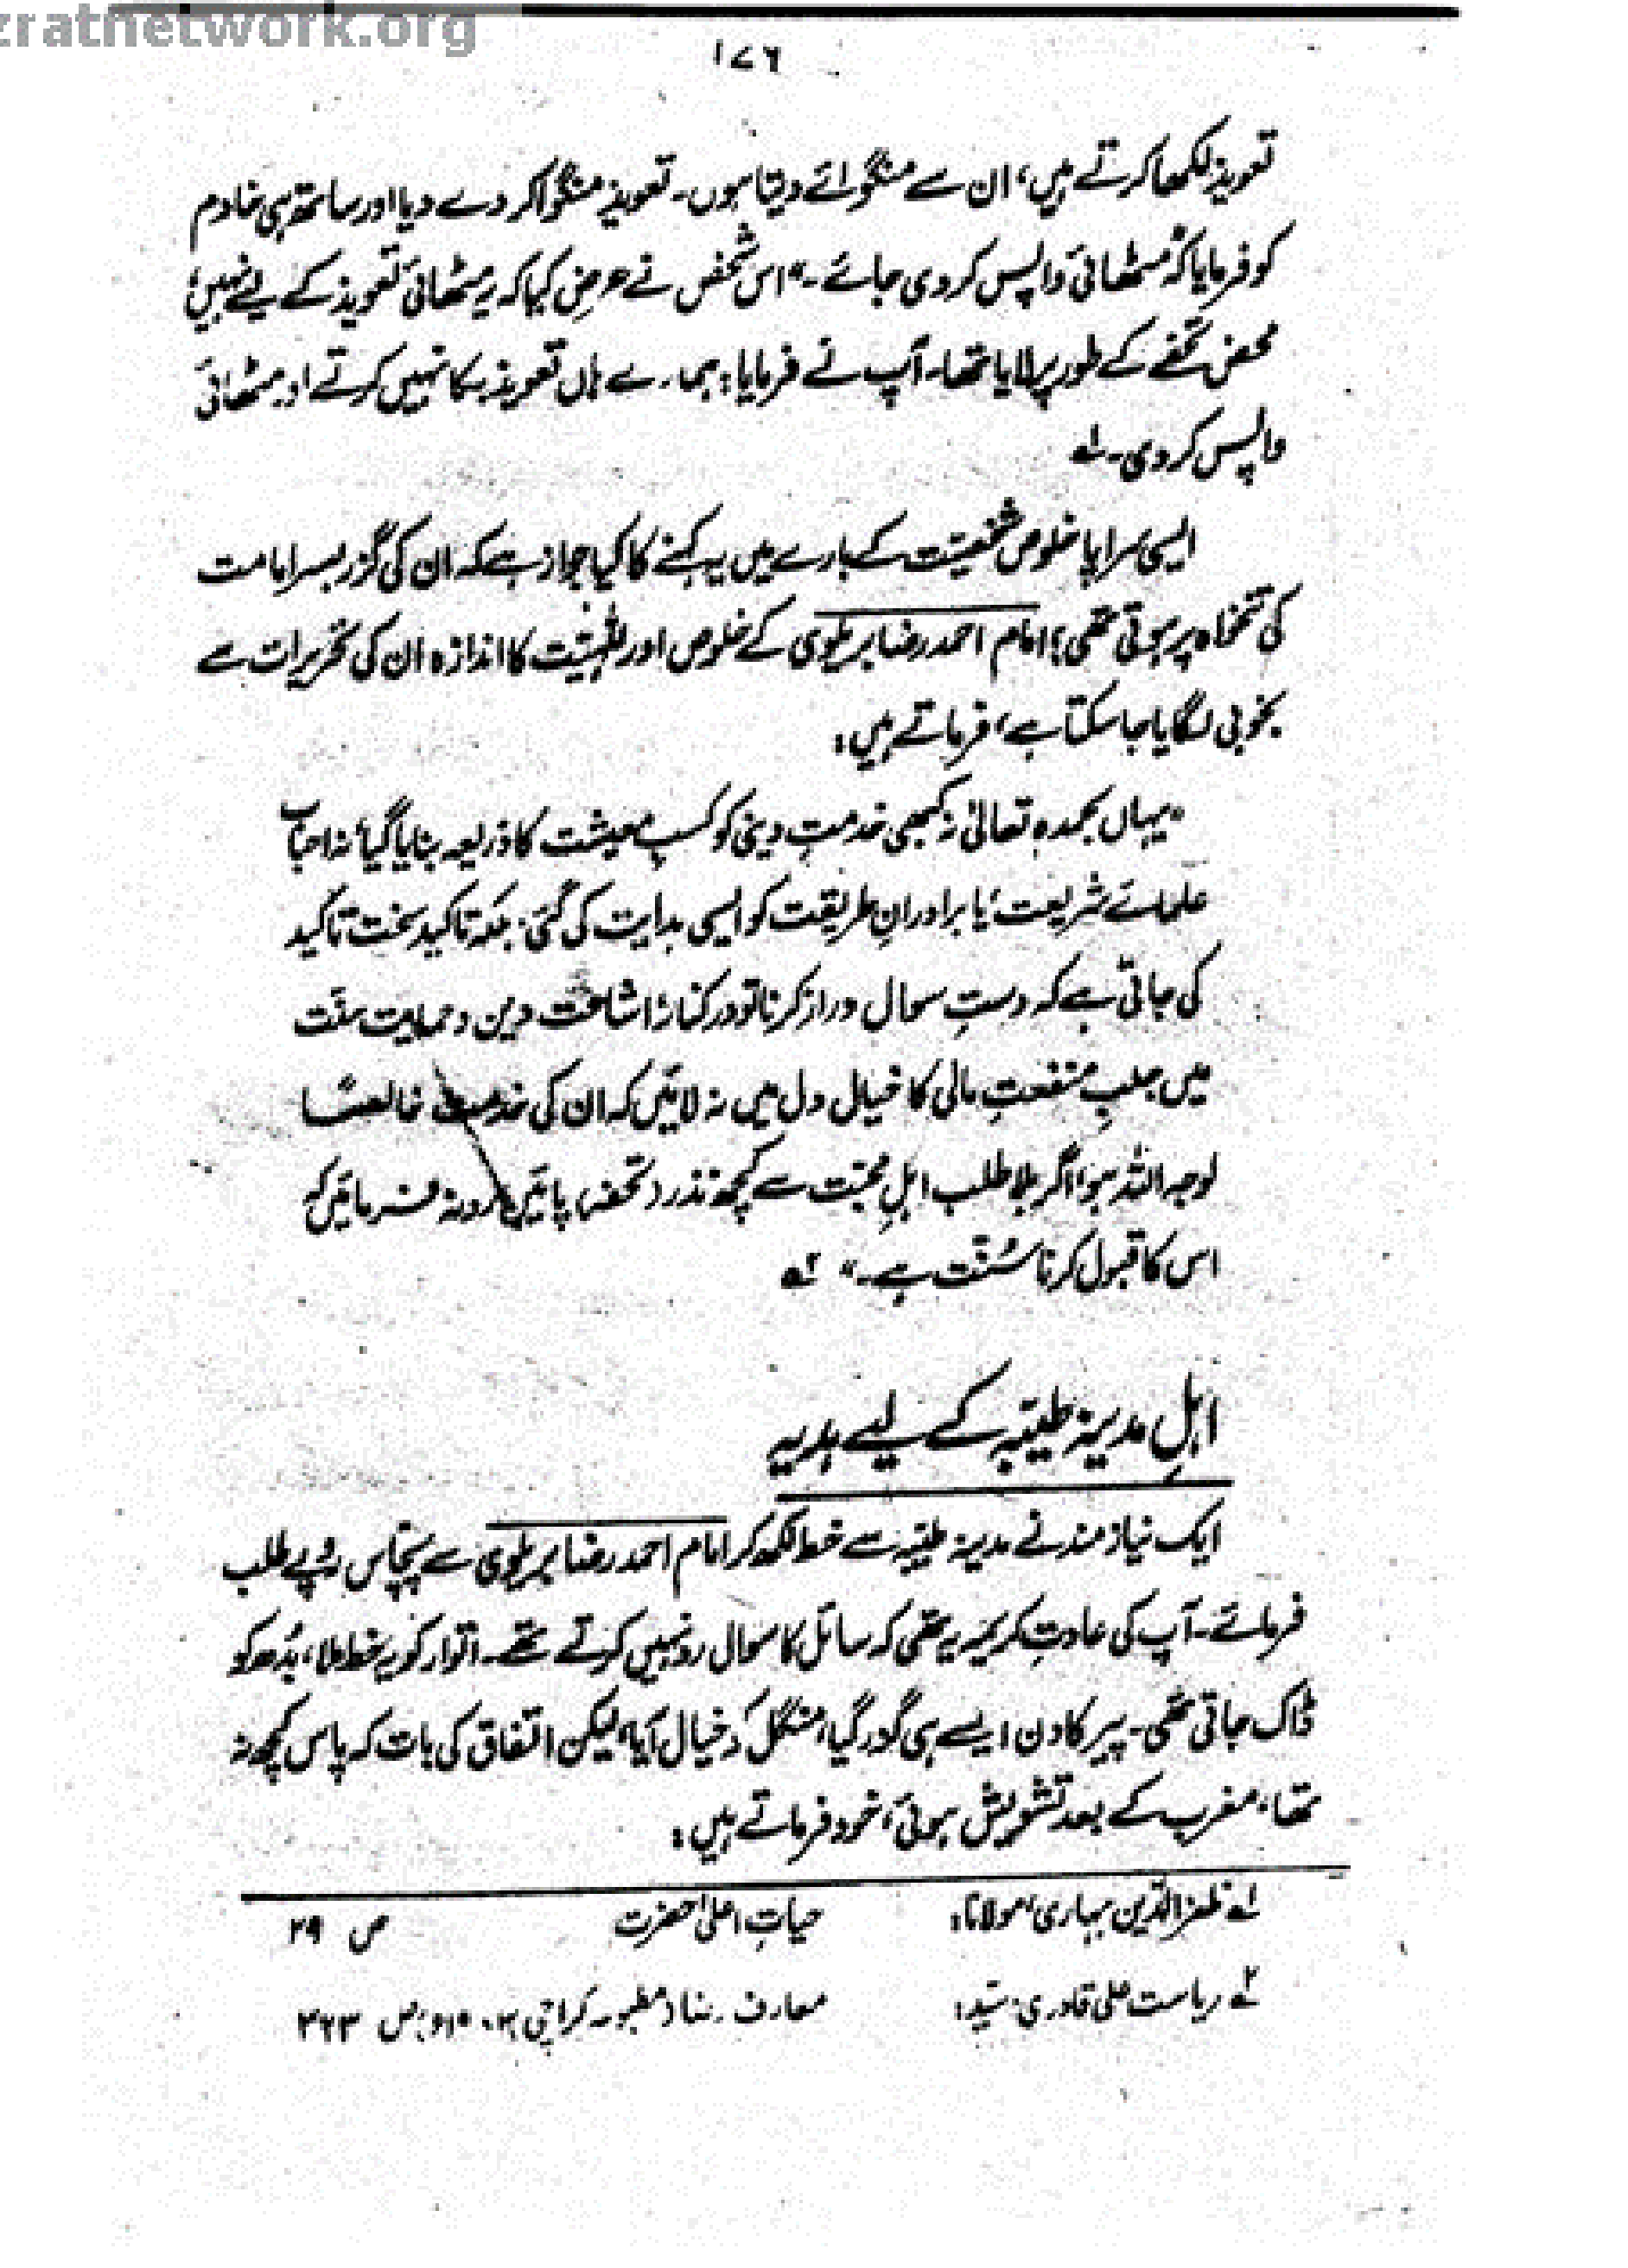 zratnetwork.org
۱۷۶
تعویذ لکھا کرتے ہیں، ان سے منگوائے دیتا ہوں۔ تعویذ منگوا کر دے دیا اور ساتھ ہی خادم
کو فرمایا کہ مٹھائی واپس کر دی جائے۔" اس شخص نے عرض کیا کہ یہ مٹھائی تعویذ کے لیے نہیں،
محض تحفے کے طور پر لایا تھا۔ آپ نے فرمایا: ہمارے ہاں تعویذ بکا نہیں کرتے اور مٹھائی
واپس کر دی۔ ۱ے
ایسی سراپا خلوص شخصیّت کے بارے میں یہ کہنے کا کیا جواز ہے کہ ان کی گزر بسر امامت
کی تنخواہ پر ہوتی تھی؟ امام احمد رضا بریلوی کے خلوص اور للّٰہیّت کا اندازہ ان کی تحریرات سے
بخوبی لگایا جا سکتا ہے، فرماتے ہیں:
"یہاں بحمدہ تعالیٰ نہ کبھی خدمتِ دینی کو کسبِ معیشت کا ذریعہ بنایا گیا، نہ احبابِ
علمائے شریعت، یا برادرانِ طریقت کو ایسی ہدایت کی گئی، بلکہ تاکید سخت تاکید
کی جاتی ہے کہ دستِ سوال دراز کرنا تو درکنار، اشاعت دین و حمایت سنّت
میں جلبِ منفعتِ مالی کا خیال دل میں نہ لائیں کہ ان کی خدمت خالصًا
لوجہ اللہ ہو، اگر بلا طلب اہلِ محبّت سے کچھ نذر (تحفہ) پائیں، رد نہ فرمائیں کہ
اس کا قبول کرنا سُنّت ہے۔" ۲ے
اہلِ مدینہ طیّبہ کے لیے ہدیہ
ایک نیاز مند نے مدینہ طیّبہ سے خط لکھ کر امام احمد رضا بریلوی سے پچاس روپے طلب
فرمائے۔ آپ کی عادتِ کریمہ یہ تھی کہ سائل کا سوال رد نہیں کرتے تھے۔ اتوار کو یہ خط ملا، بدھ کو
ڈاک جاتی تھی۔ پیر کا دن ایسے ہی گزر گیا، منگل کو خیال آیا، لیکن اتفاق کی بات کہ پاس کچھ نہ
تھا، مغرب کے بعد تشویش ہوئی، خود فرماتے ہیں:
۱ے ظفر الدّین بہاری، مولانا: حیاتِ اعلیٰ حضرت ص ۲۹
۲ے ریاست علی قادری، سیّد: معارف رضا (مطبوعہ کراچی ص ۲۲۳